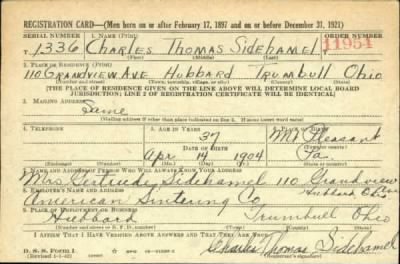 REGISTRATION CARD—(Men born on or after February 17, 1897 and on or before December 31, 1921)
SERIAL NUMBER 1. NAME (Print) ORDER NUMBER
T 1336 CHARLES THOMAS SIDEHAMEL T 11954
(First) (Middle) (Last)
2. PLACE OF RESIDENCE (Print)
110 GRANDVIEW AVE HUBBARD TRUMBULL OHIO
(Number and street) (Town, township, village, or city) (County) (State)
[THE PLACE OF RESIDENCE GIVEN ON THE LINE ABOVE WILL DETERMINE LOCAL BOARD
JURISDICTION; LINE 2 OF REGISTRATION CERTIFICATE WILL BE IDENTICAL]
3. MAILING ADDRESS
Same
[Mailing address if other than place indicated on line 2. If same insert word same]
4. TELEPHONE 5. AGE IN YEARS 6. PLACE OF BIRTH
37 Mt. Pleasant
DATE OF BIRTH
Apr 14 1904 Pa.
7. NAME AND ADDRESS OF PERSON WHO WILL ALWAYS KNOW YOUR ADDRESS
Mrs Gertrude Sidehamel 110 Grandview
8. EMPLOYER'S NAME AND ADDRESS Hubbard Ohio
American Sintering Co,
9. PLACE OF EMPLOYMENT OR BUSINESS
Hubbard Trumbull Ohio
I AFFIRM THAT I HAVE VERIFIED ABOVE ANSWERS AND THAT THEY ARE TRUE.
D. S. S. Form 1
(Revised 1-1-42)
Charles Thomas Sidehamel